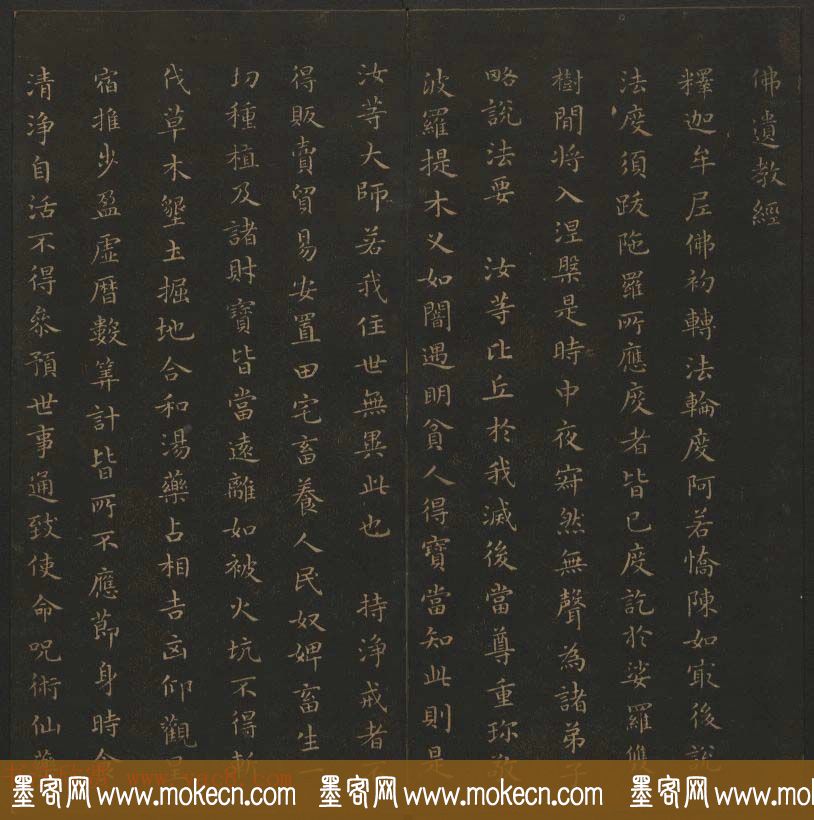 佛遺教經
釋迦牟尼佛初轉法輪度阿若憍陳如最後說
法度須跋陁羅所應度者皆已度訖於娑羅雙
樹間將入涅槃是時中夜寂然無聲為諸弟子
略說法要 汝等比丘於我滅後當尊重珎敬
波羅提木叉如闇遇明貧人得寶當知此則是
汝等大師若我住世無異此也 持淨戒者不
得販賣貿易安置田宅畜養人民奴婢畜生一
切種植及諸財寶皆當遠離如被火坑不得斬
伐草木墾土掘地合和湯藥占相吉凶仰觀星
宿推步盈虛曆數筭計皆所不應莭身時食
清淨自活不得叅預世事通致使命呪術仙藥
墨客网 www.mokecn.com 墨客网 www.mokecn.com 墨客网 www.